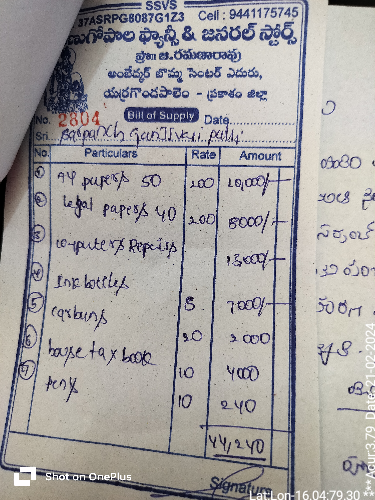 SSVS
37ASRPG8087G1Z3 Cell : 9441175745
వేణుగోపాల ఫ్యాన్సీ & జనరల్ స్టోర్స్
ప్రొ॥ ఆ.రమణారావు
అంబేద్కర్ బొమ్మ సెంటర్ ఎదురు,
యర్రగొండపాలెం - ప్రకాశం జిల్లా
No. 2804 Bill of Supply Date
Sri. Sarpanch
No. Particulars Rate Amount
1 A4 papers 50 200 10,000/-
2 Legal papers 40 200 8000/-
3 computers Repairs 13,000/-
4 Ink bottles 7000/-
5 carbons 20 2000
6 house tax book 10 4000
7 pens 10 240
44,240
Signature
Shot on OnePlus
Lat:Lon-16.04:79.30 *** Acur:3.79 Date:21-02-2024